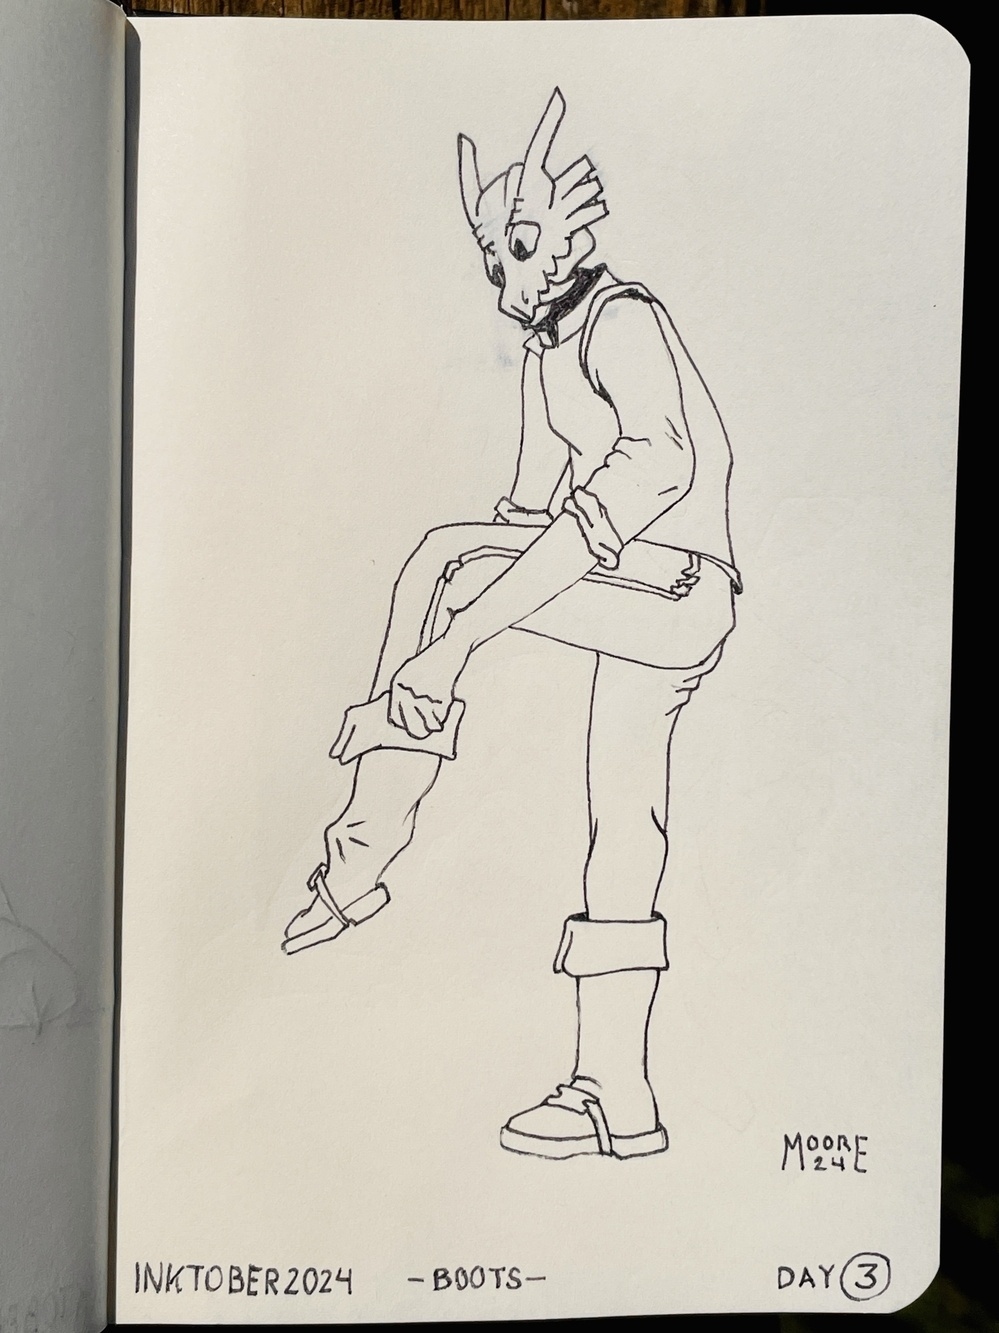 MOORE
24
INKTOBER 2024 -BOOTS- DAY 3